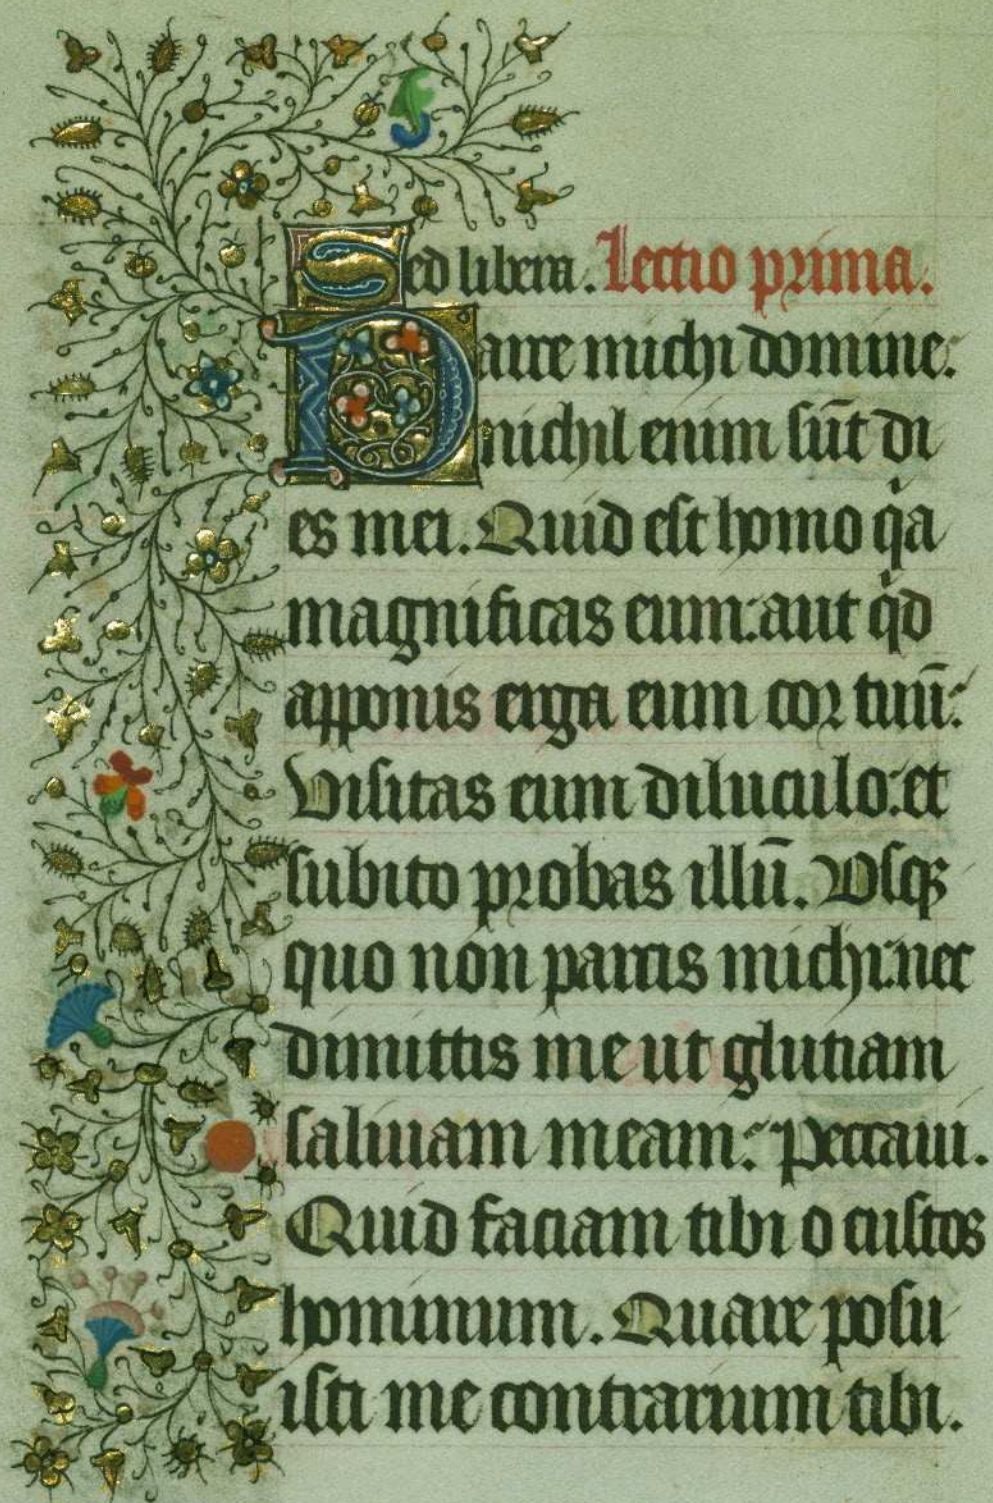 Sed libera. Lectio prima.
Parce michi domine:
nichil enim sūt di
es mei. Quid est homo qͥa
magnificas eum: aut qͥd
apponis erga eum cor tuū:
Visitas eum diluculo: et
subito probas illū. Usqꝫ
quo non parcis michi: nec
dimittis me ut glutiam
saliuam meam: peccaui.
Quid faciam tibi o custos
hominum. Quare posu
isti me contrarium tibi.